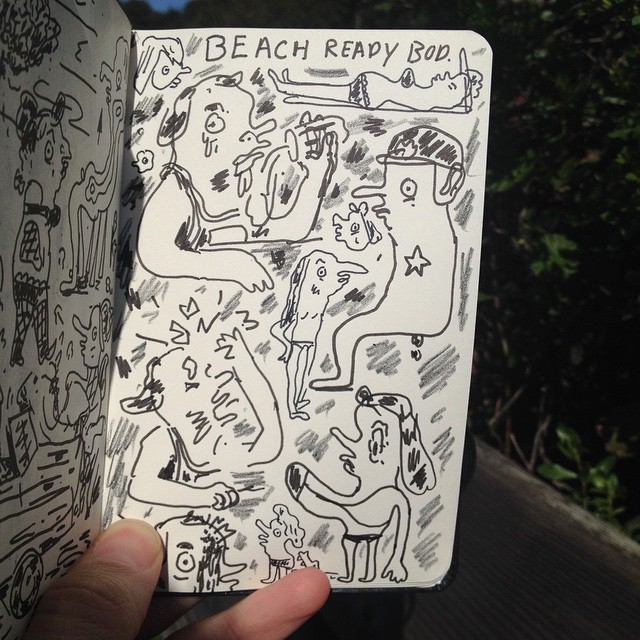 BEACH READY BOD.